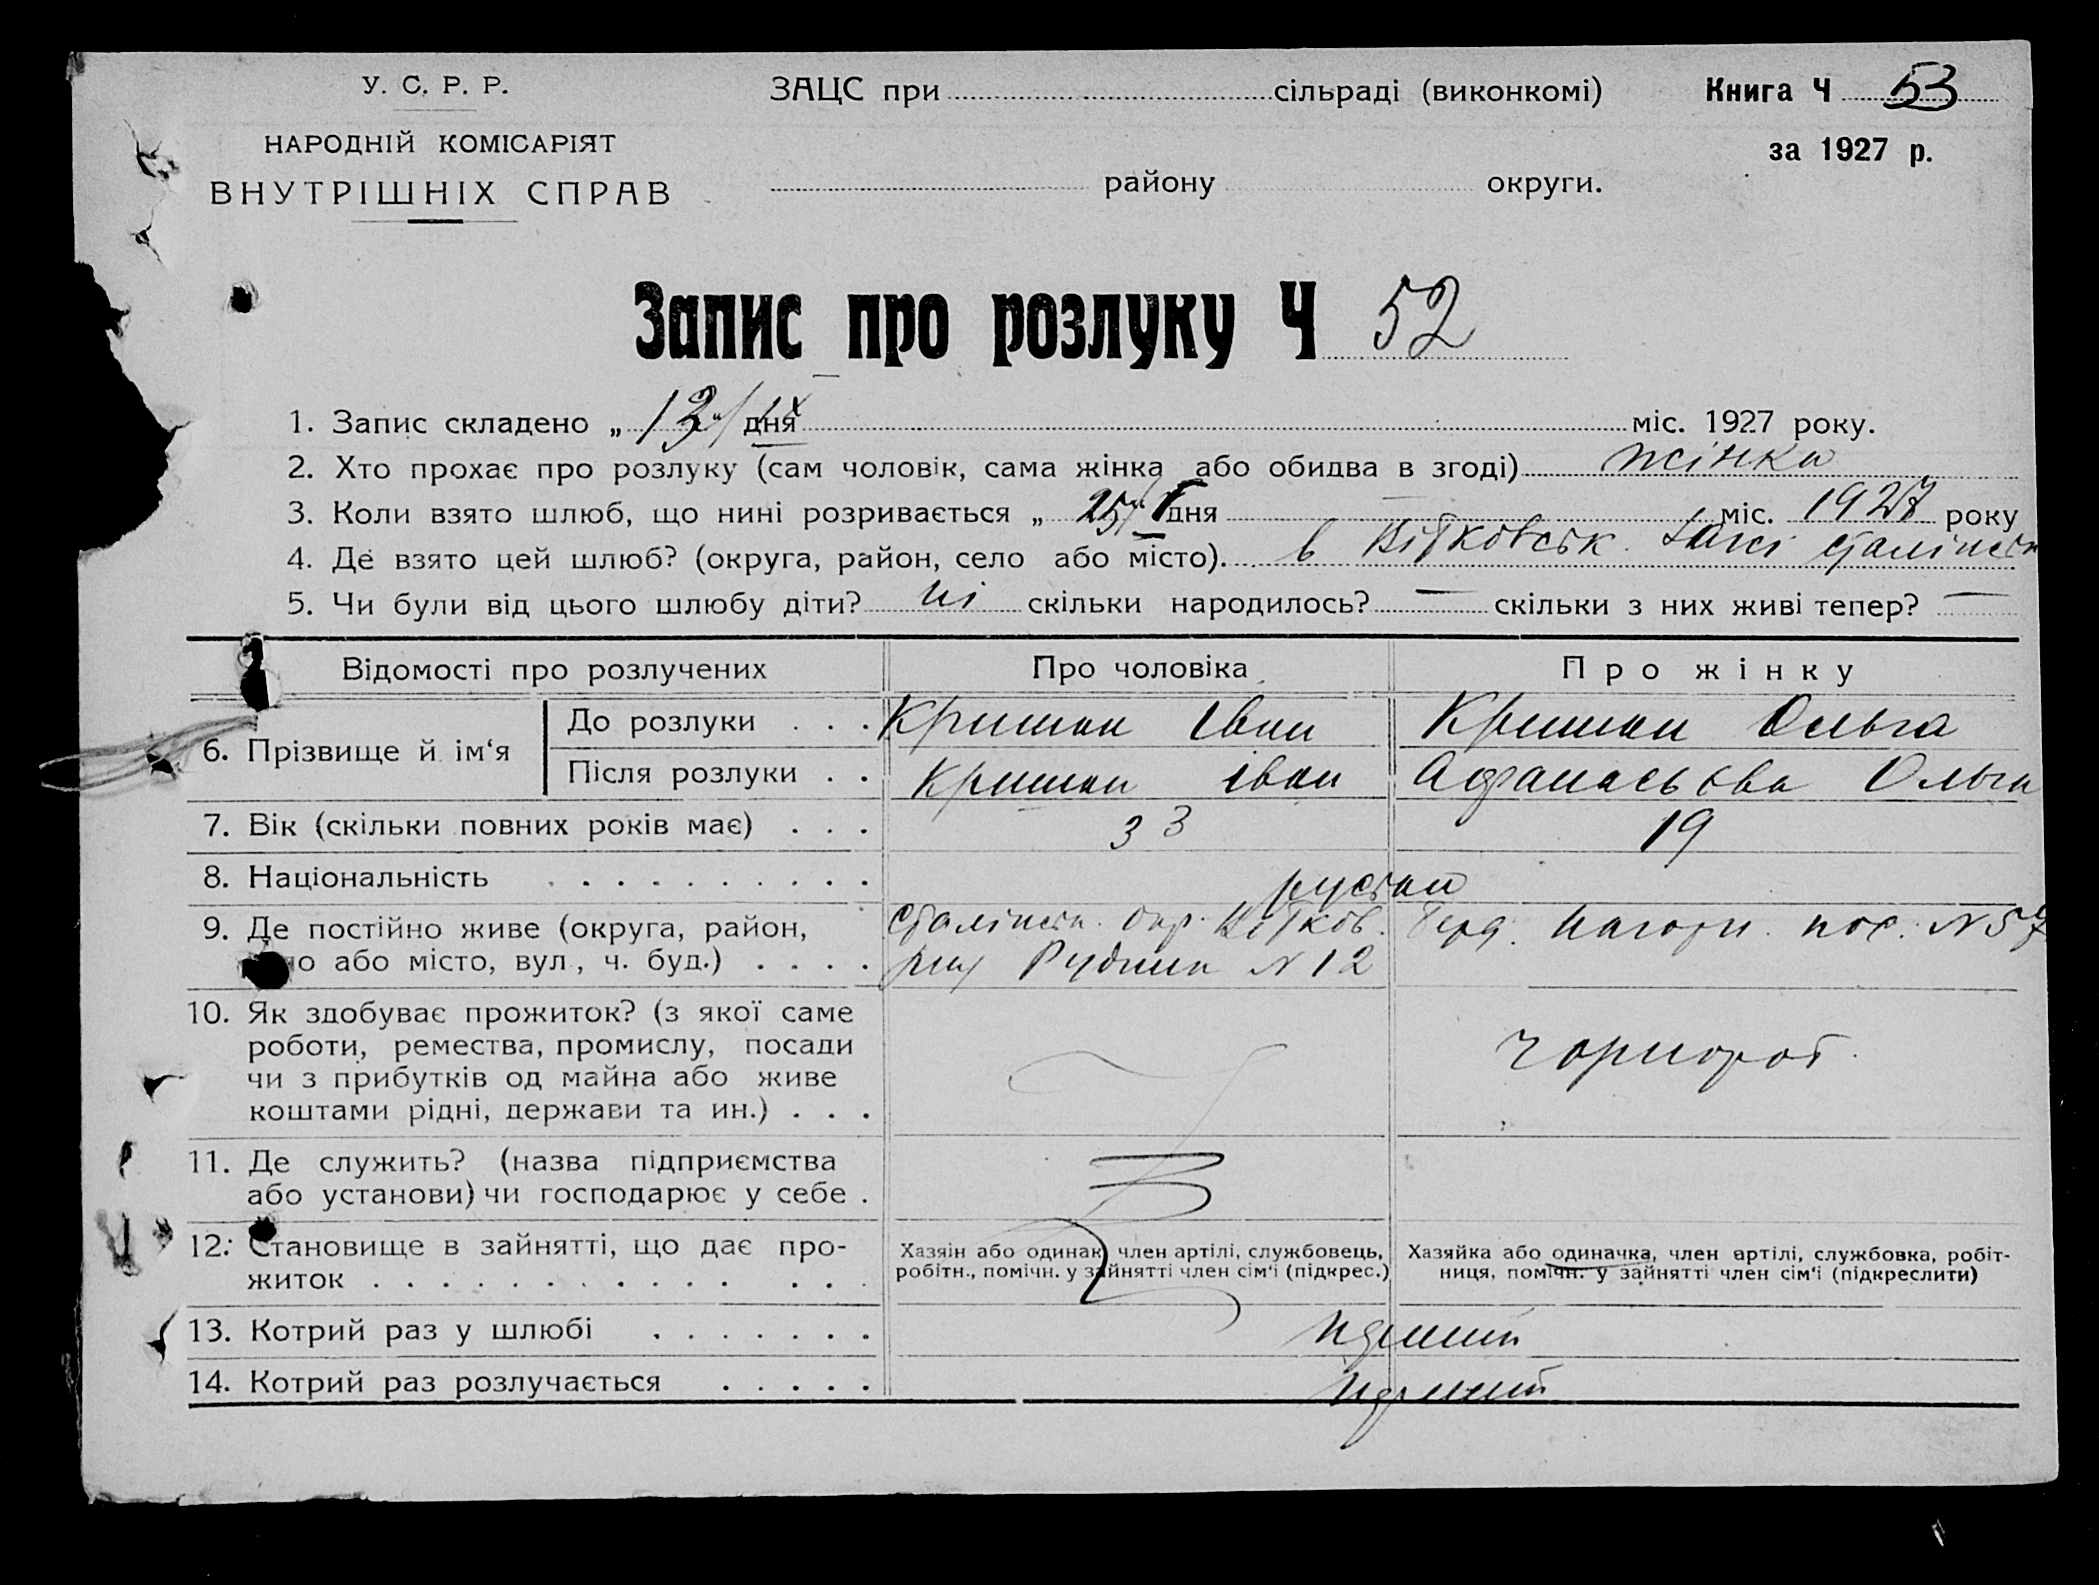 У. С. Р. Р.
НАРОДНІЙ КОМІСАРІЯТ
ВНУТРІШНІХ СПРАВ
ЗАЦС при сільраді (виконкомі)
району округи.
Книга Ч 53
за 1927 р.
Запис про розлуку Ч 52
1. Запис складено „ 13 / ІХ дня міс. 1927 року.
2. Хто прохає про розлуку (сам чоловік, сама жінка або обидва в згоді) жінка
3. Коли взято шлюб, що нині розривається „ 25/ дня міс. 1927 року
4. Де взято цей шлюб? (округа, район, село або місто). в Вітковськ. Загсі сталінськ
5. Чи були від цього шлюбу діти? ні скільки народилось? — скільки з них живі тепер? —
Відомості про розлучених Про чоловіка Про жінку
6. Прізвище й ім‘я До розлуки . . . Кришан Іван Кришан Ольга
Після розлуки . . Кришан Іван Афанасьєва Ольга
7. Вік (скільки повних років має) . . . 33 19
8. Національність . . . . . . . . . .
9. Де постійно живе (округа, район, Сталінськ. окр. Вітков. Берд. Нагорн. пос. N 57
або місто, вул., ч. буд.) . . . . Рудник N 12
10. Як здобуває прожиток? (з якої саме
роботи, ремества, промислу, посади чорнороб.
чи з прибутків од майна або живе
коштами рідні, держави та ин.) . . .
11. Де служить? (назва підприємства
або установи) чи господарює у себе .
12. Становище в зайнятті, що дає про-
житок . . . . . . . . . . . . . . .
Хазяін або одинак, член артілі, службовець,
робітн., помічн. у зайнятті член сім‘ї (підкрес.)
Хазяйка або одиначка, член артілі, службовка, робіт-
ниця, помічн. у зайнятті член сім‘ї (підкреслити)
13. Котрий раз у шлюбі . . . . . . .
14. Котрий раз розлучається . . . . .